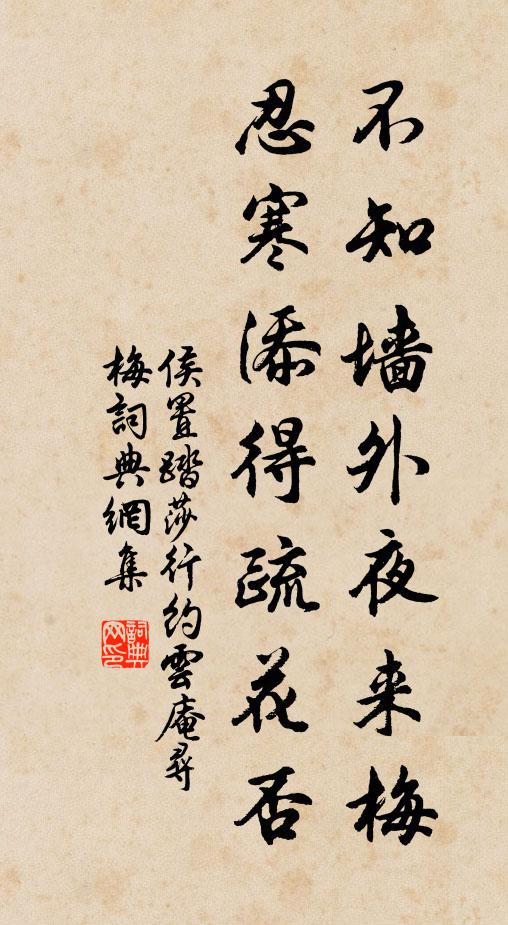 不知墙外夜来梅
忍寒添得疏花否
侯置踏莎行约雲庵尋
梅詞典網集
詞典網印